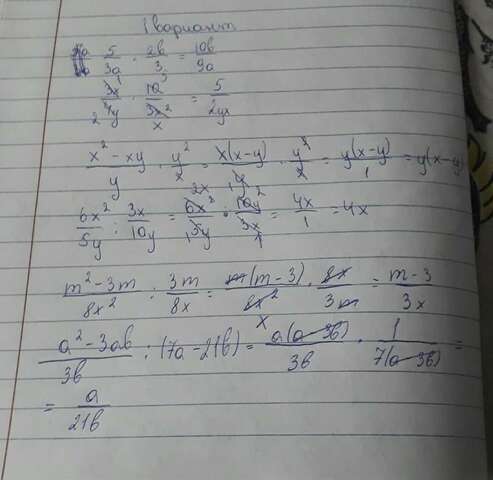 1 вариант
5/3a · 2b/3 = 10b/9a
3x/4y · 10/3x² = 5/2yx
(x² - xy)/y · y²/x = x(x-y)/y · y²/x = y(x-y)/1 = y(x-y)
6x²/5y : 3x/10y = 6x²/5y · 10y/3x = 4x/1 = 4x
(m² - 3m)/8x² : 3m/8x = m(m-3)/8x² · 8x/3m = (m-3)/3x
(a² - 3ab)/3b : (7a - 21b) = a(a-3b)/3b · 1/7(a-3b) =
= a/21b